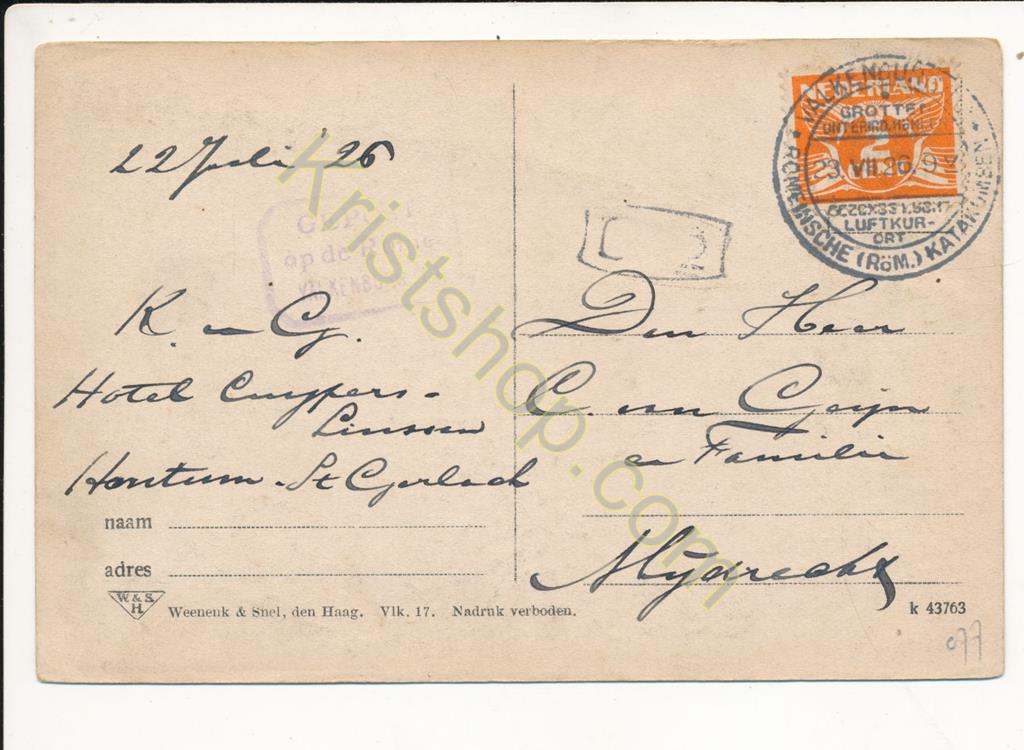 22 Juli '26
K. en G.
Hotel Cuypers-
Linssen
Houtum - St Gerlach
naam
adres
W & S
H
Weenenk & Snel, den Haag. Vlk. 17. Nadruk verboden.
op de
VALKENBURG
NEDERLAND
2
VALKENBURG
GROTTEN
UNTERIRD. HÖHLE
23.VII.26. 9
LUFTKUR-
ORT
* ROMEINSCHE (RÖM.) KATAKOMBEN *
Den Heer
C. van Geijn
en Familie
Mydrecht
k 43763
077
Kristshop.com